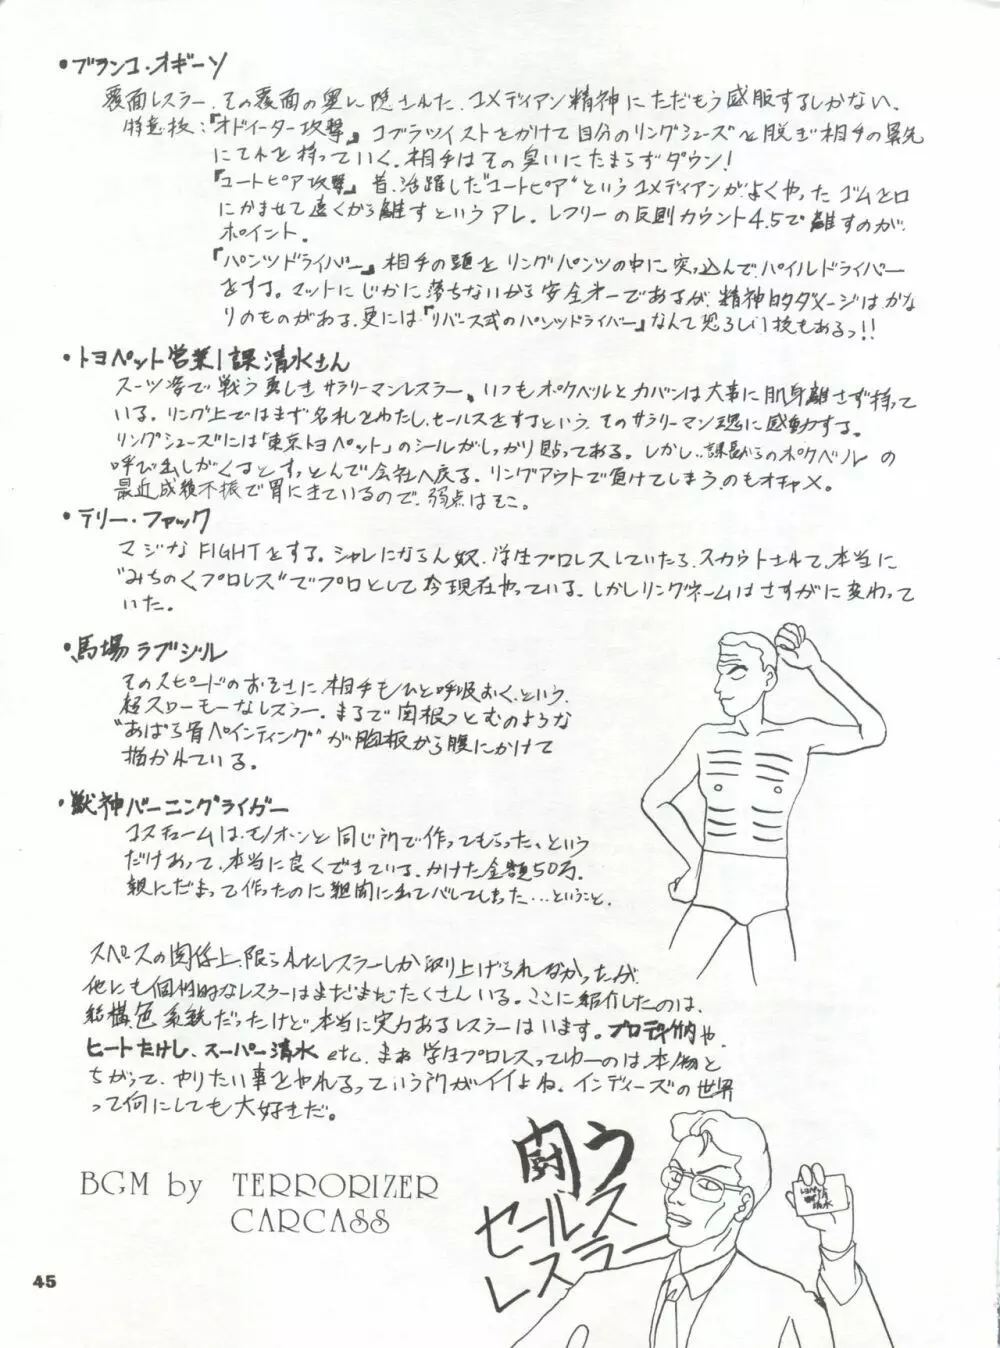 ・ブランコ・オギーソ
覆面レスラー、その覆面の奥に隠された、コメディアン精神にただもう感服するしかない、
特意技:『オドイーター攻撃』コブラツイストをかけて自分のリングシューズを脱ぎ相手の鼻先
にそれを持っていく、相手はその臭いにたまらずダウン!
『ユートピア攻撃』昔、活躍した"ユートピア"というコメディアンがよくやったゴムを口
にかませて遠くから離すというアレ。レフリーの反則カウント4.5で離すのが、
ポイント。
『パンツドライバー』相手の頭をリングパンツの中に突っ込んでパイルドライバー
をする。マットにじかに落ちないから安全オーであるが、精神的ダメージはかな
りのものがある、更には『リバース式のパンツドライバー』なんて恐ろしい技もあるっ!!
・トヨペット営業1課清水さん
スーツ姿で戦う勇しきサラリーマンレスラー、いつもポケベルとカバンは大事に肌身離さず持って
いる。リング上ではまず名札をわたし、セールスをするという、そのサラリーマン魂に感動する。
リングシューズには「東京トヨペット」のシールがしっかり貼ってある。しかし、課長からのポケベルの
呼び出しがくるとすっとんで会社へ戻る。リングアウトで負けてしまう、のもオチャメ。
最近成績不振で胃にきているので、弱点はそこ。
・テリー・ファック
マジなFIGHTをする。シャレにならん奴、学生プロレスしていたら、スカウトされて、本当に
"みちのくプロレス"でプロとして今現在やっている。しかしリングネームはさすがに変わって
いた。
・馬場ラブジル
そのスピードのおそさに相手もひと呼吸おく、という、
超スローモーなレスラー。まるで関根つとむのような
"あばら骨ペインティング"が胸板から腹にかけて
描かれている。
・獣神バーニングライガー
コスチュームは、モノホンと同じ所で作ってもらった、という
だけあって、本当に良くできている、かけた金額50万、
親にだまって作ったのに新聞に出てバレてしまった…ということ、
スペースの関係上、限られたレスラーしか取り上げられなかったが、
他にも個性的なレスラーはまだまだたくさんいる。ここに紹介したのは、
結構色系統だったけど、本当に実力あるレスラーはいます。プロディ竹内や、
ヒートたけし、スーパー清水etc、まあ学生プロレスってゆーのは、本物と
ちがって、やりたい事をやれるっていう所がイイよね。インディーズの世界
って何にしても大好きだ。
BGM by TERRORIZER
CARCASS
闘う
セールス
レスラー
トヨペット
清水
45